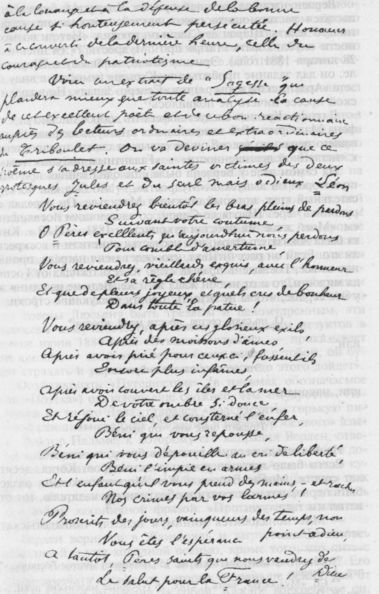 à la louange et à la défense de la bonne
cause si honteusement persécutée. Honneur
à ce converti de la dernière heure, celle du
courage et du patriotisme
Voici un extrait de "Sagesse" qui
plaidera mieux que toute analyse la cause
de cet excellent poète et de ce bon réactionnaire
auprès des lecteurs ordinaires et extraordinaires
du Triboulet. On va deviner que ce
poème s'adresse aux saintes victimes des deux
grotesques Jules et du seul mais odieux Léon
Vous reviendrez bientôt les bras pleins de pardons
Suivant votre coutume
O Pères excellents qu'aujourd'hui nous perdons
Pour comble d'amertume
Vous reviendrez, vieillards exquis, avec l'honneur
Et sa règle chérie
Et que de pleurs joyeux, et quels cris de bonheur
Dans toute la patrie !
Vous reviendrez, après ces glorieux exils
Après des moissons d'âmes
Après avoir prié pour ceux-ci, fussent-ils
Encore plus infâmes
Après avoir couvert les îles et la mer
De votre ombre si douce
Et réjoui le ciel, et consterné l'enfer,
Béni qui vous repousse,
Béni qui vous dépouille au cri de liberté
Béni l'impie en armes
Et l'enfant qu'il vous prend des mains - et
Nos crimes par vos larmes !
Proscrits des jours, vainqueurs des temps, non
point adieu
Vous êtes l'espérance
A tantôt, Pères saints qui nous vaudrez de
Dieu
Le salut pour la France !